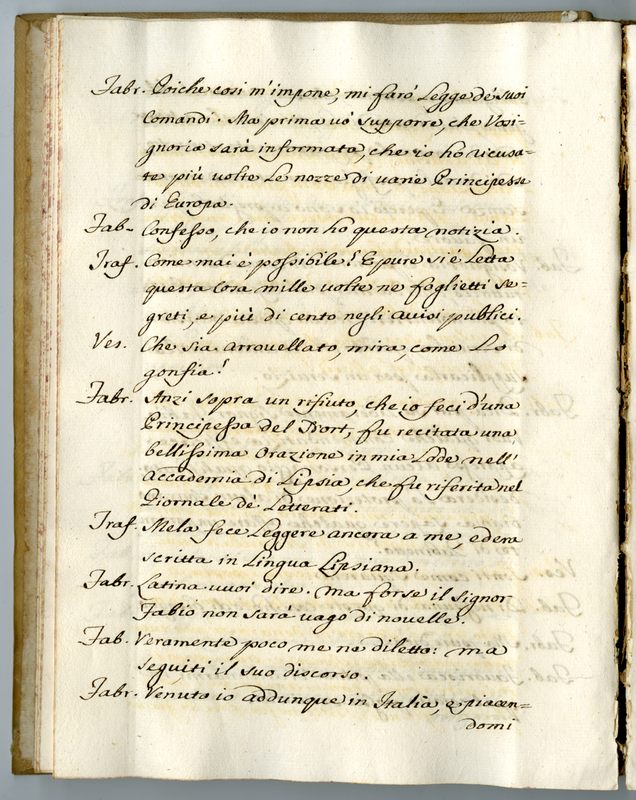 Fabr. Poiche così m'impone, mi farò Legge de' suoi
Comandi. Ma prima vò supporre, che Vosi=
gnoria sarà informata, che io ho ricusa=
te più volte Le nozze di varie Principesse
di Europa.
Fab. Confesso, che io non ho questa notizia.
Traf. Come mai è possibile! E pure si è Letta
questa Cosa mille volte ne foglietti se=
greti, e più di cento negli avvisi publici.
Ves. Che sia arrovellato, mira, come Lo
gonfia!
Fabr. Anzi sopra un rifiuto, che io feci d'una
Principessa del Nort, fu recitata una
bellissima Orazione in mia Lode nell'
Accademia di Lipsia, che fu riferita nel
Giornale dè Letterati.
Traf. Mela fece Leggere ancora a me, ed era
scritta in Lingua Lipsiana.
Fabr. Latina vuoi dire. Ma forse il signor
Fabio non sarà vago di novelle.
Fab. Veramente poco me ne diletto: ma
seguiti il suo discorso.
Fabr. Venuto io addunque in Italia, e piacen=
domi